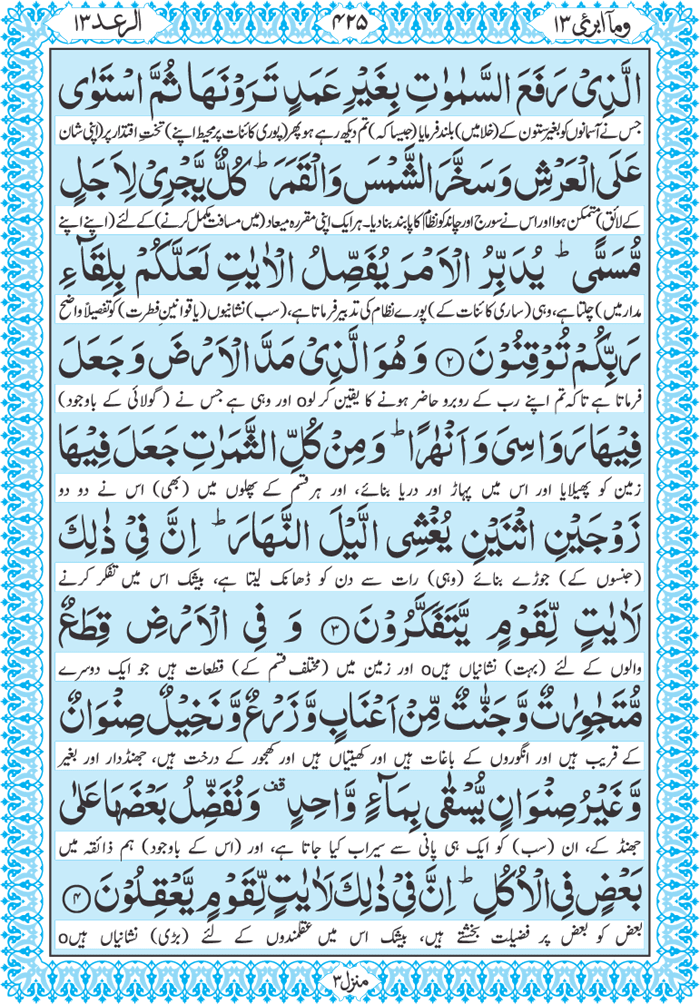 ومآ ابرئ ۱۳ ۴۲۵ الرعد ۱۳
الَّذِیْ رَفَعَ السَّمٰوٰتِ بِغَیْرِ عَمَدٍ تَرَوْنَهَا ثُمَّ اسْتَوٰی
جس نے آسمانوں کو بغیر ستون کے (خلا میں) بلند فرمایا (جیسا کہ) تم دیکھ رہے ہو پھر (پوری کائنات پر محیط اپنے) تختِ اقتدار پر (اپنی شان
عَلَی الْعَرْشِ وَسَخَّرَ الشَّمْسَ وَالْقَمَرَ ؕ كُلٌّ یَّجْرِیْ لِاَجَلٍ
کے لائق) متمکن ہوا اور اس نے سورج اور چاند کو نظام کا پابند بنا دیا۔ ہر ایک اپنی مقررہ میعاد (میں مسافت مکمل کرنے) کے لئے (اپنے اپنے
مُّسَمًّی ؕ یُدَبِّرُ الْاَمْرَ یُفَصِّلُ الْاٰیٰتِ لَعَلَّكُمْ بِلِقَآءِ
مدار میں) چلتا ہے، وہی (ساری کائنات کے) پورے نظام کی تدبیر فرماتا ہے، (سب) نشانیوں (یا قوانینِ فطرت) کو تفصیلاً واضح
رَبِّكُمْ تُوْقِنُوْنَ ۝۲ وَهُوَ الَّذِیْ مَدَّ الْاَرْضَ وَجَعَلَ
فرماتا ہے تاکہ تم اپنے رب کے روبرو حاضر ہونے کا یقین کر لوo اور وہی ہے جس نے (گولائی کے باوجود)
فِیْهَا رَوَاسِیَ وَاَنْهٰرًا ؕ وَمِنْ كُلِّ الثَّمَرٰتِ جَعَلَ فِیْهَا
زمین کو پھیلایا اور اس میں پہاڑ اور دریا بنائے، اور ہر قسم کے پھلوں میں (بھی) اس نے دو دو
زَوْجَیْنِ اثْنَیْنِ یُغْشِی الَّیْلَ النَّهَارَ ؕ اِنَّ فِیْ ذٰلِكَ
(جنسوں کے) جوڑے بنائے (وہی) رات سے دن کو ڈھانک لیتا ہے، بیشک اس میں تفکر کرنے
لَاٰیٰتٍ لِّقَوْمٍ یَّتَفَكَّرُوْنَ ۝۳ وَ فِی الْاَرْضِ قِطَعٌ
والوں کے لئے (بہت) نشانیاں ہیںo اور زمین میں (مختلف قسم کے) قطعات ہیں جو ایک دوسرے
مُّتَجٰوِرٰتٌ وَّجَنّٰتٌ مِّنْ اَعْنَابٍ وَّزَرْعٌ وَّنَخِیْلٌ صِنْوَانٌ
کے قریب ہیں اور انگوروں کے باغات ہیں اور کھیتیاں ہیں اور کھجور کے درخت ہیں، جھنڈدار اور بغیر
وَّغَیْرُ صِنْوَانٍ یُّسْقٰی بِمَآءٍ وَّاحِدٍ قف وَنُفَضِّلُ بَعْضَهَا عَلٰی
جھنڈ کے، ان (سب) کو ایک ہی پانی سے سیراب کیا جاتا ہے، اور (اس کے باوجود) ہم ذائقہ میں
بَعْضٍ فِی الْاُكُلِ ؕ اِنَّ فِیْ ذٰلِكَ لَاٰیٰتٍ لِّقَوْمٍ یَّعْقِلُوْنَ ۝۴
بعض کو بعض پر فضیلت بخشتے ہیں، بیشک اس میں عقلمندوں کے لئے (بڑی) نشانیاں ہیںo
منزل ۳